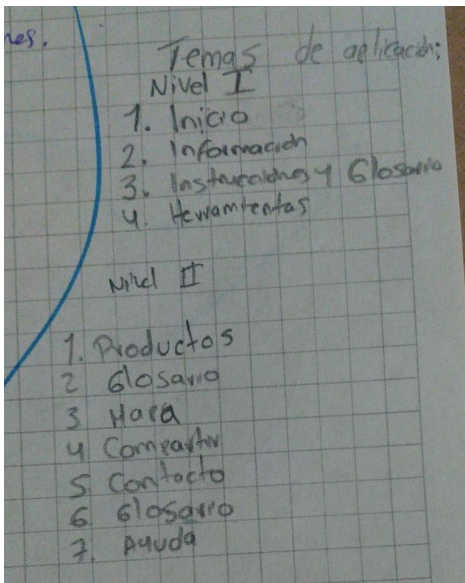 nes.
Temas de aplicación:
Nivel I
1. Inicio
2. Información
3. Instrucciones y Glosario
4. Herramientas
Nivel II
1. Productos
2 Glosario
3 Mapa
4 Compartir
5 Contacto
6 Glosario
7. Ayuda